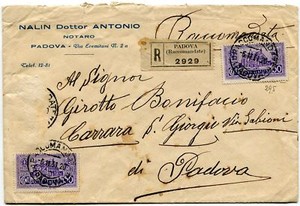 NALIN Dottor ANTONIO
NOTARO
PADOVA - Via Eremitani N. 2 a
Telef. 12-81
Raccomandata
R
PADOVA
(Raccomandate)
2929
Al Signor
Girotto Bonifacio
Carrara S. Giorgio Via Sabioni
di Padova